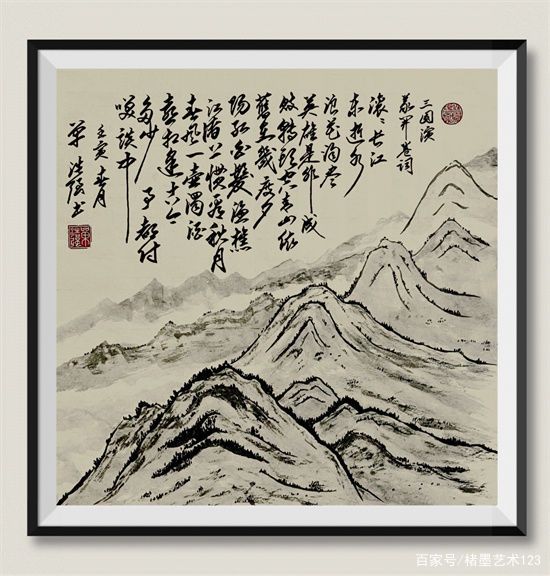 三国演
义开卷词
滚々长江
东逝水
浪花淘尽
英雄是非成
败转头空青山依
舊在幾度夕
阳红白髮渔樵
江渚上惯看秋月
春风一壶浊酒
喜相逢古今
多少事都付
笑谈中
壬寅春月
书
百家号/楮墨艺术123